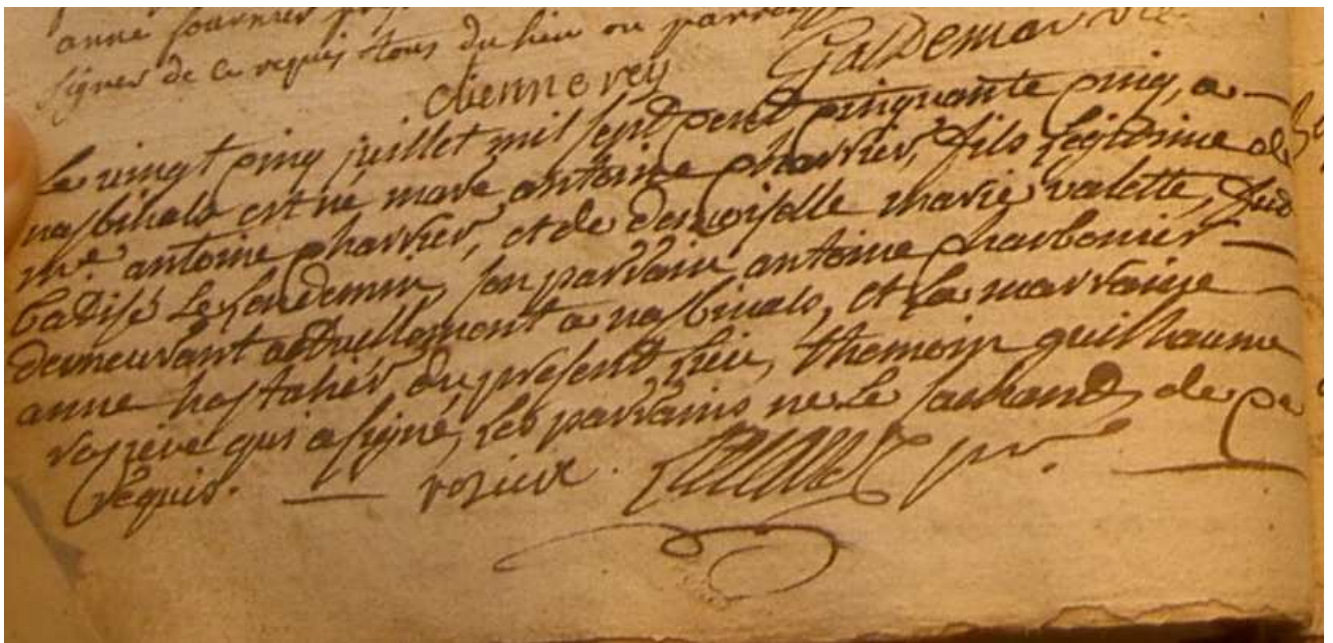 anne fournier
signer de ce requis tous du lieu ou parroisse
etienne rey Galdemar vic.
Le vingt cinq juillet mil sept cent cinquante cinq, a
nasbinals est né marc antoine charrier, fils legitime de
me. antoine charrier, et de demoiselle marie valette, fut
batisé le lendemin, son parrain antoine charbonier
demeurant actuellement a nasbinals, et la marraine
anne hostalier du present lieu, themoin guilhaume
rosieve qui a signé, les parrains ne le sachant, de ce
requis. rosieve pr.